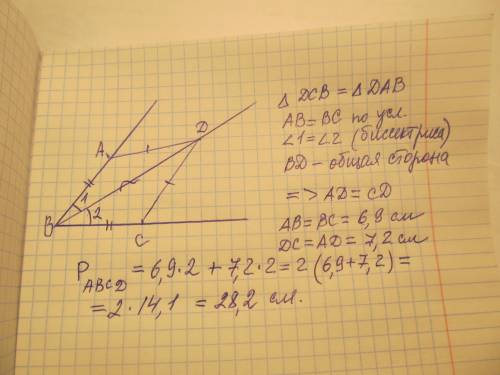 Δ DCB = Δ DAB
AB = BC по усл.
∠1 = ∠2 (биссектриса)
BD - общая сторона
=> AD = CD
AB = BC = 6,9 см
DC = AD = 7,2 см
A
D
1
2
B
C
P ABCD = 6,9·2 + 7,2·2 = 2 (6,9+7,2) =
= 2·14,1 = 28,2 см.